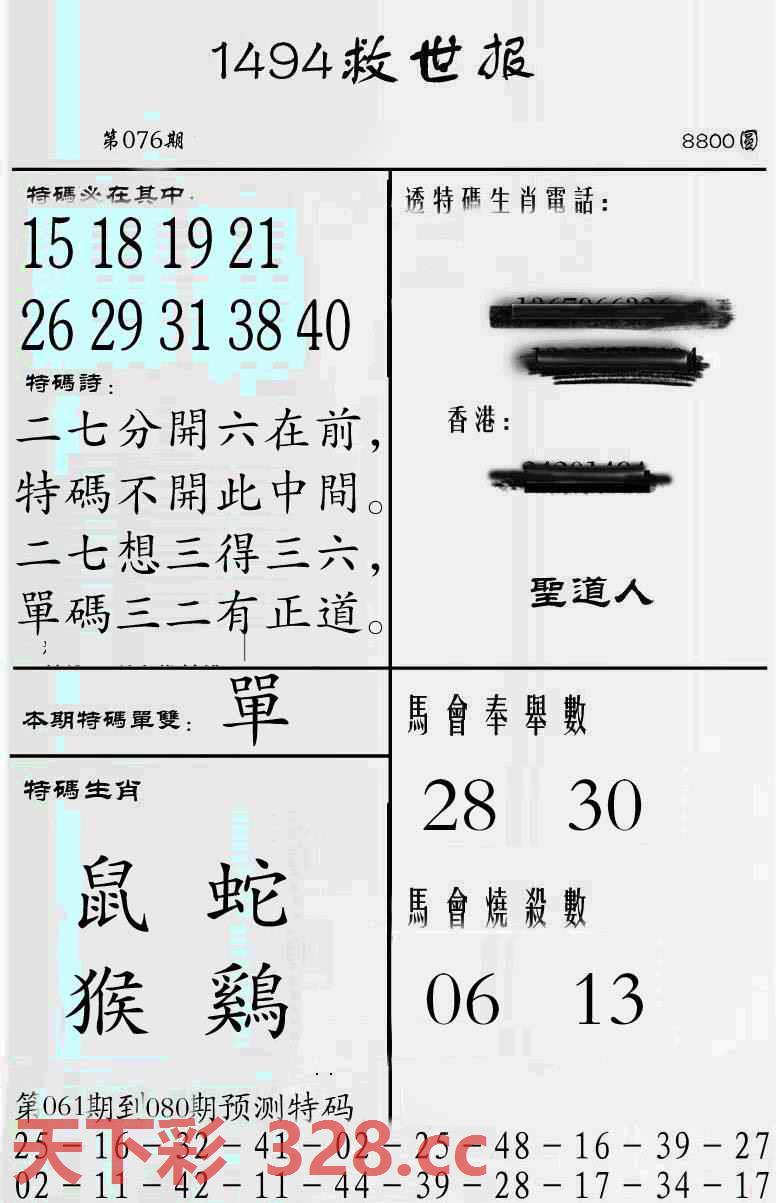 1494救世报
第076期
8800圓
特碼必在其中:
15 18 19 21
26 29 31 38 40
特碼詩:
二七分開六在前,
特碼不開此中間。
二七想三得三六,
單碼三二有正道。
透特碼生肖電話:
香港:
聖道人
本期特碼單雙: 單
特碼生肖
鼠 蛇
猴 鷄
馬會奉舉數
28 30
馬會燒殺數
06 13
第061期到080期预测特码
25-16-32-41-02-25-48-16-39-27
02-11-42-11-44-39-28-17-34-17
天下彩 328.cc